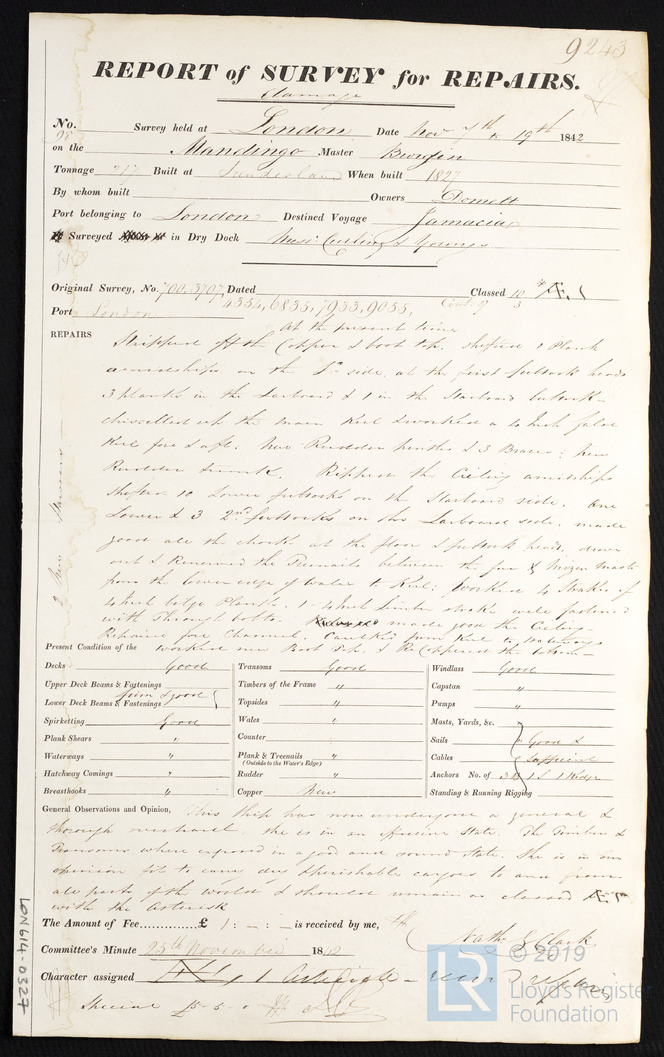 9243
REPORT of SURVEY for REPAIRS.
Damage
No. 98 Survey held at London Date Nov 7th & 19th 1842
on the Mandingo Master
Tonnage 217 Built at Sunderland When built 1827
By whom built Owners Demett
Port belonging to London Destined Voyage Jamacia
Surveyed in Dry Dock Messrs Curling & Youngs
Original Survey, No. 700, 3707, Dated 4354, 6835, 7933, 9035, Classed 10 Æ 1
Port London Contd 9 3
At the present time
REPAIRS Stripped off the Copper & boot top. shifted 1 Plank
amidships on the Sd side, at the first futtock heads
3 planks in the Larboard & 1 in the Starboard buttock
chisselled up the main Keel & worked a 4 Inch false
Keel fore & aft. New Rudder pintles & 3 Braces; New
Rudder trunk. Ripped the Cieling amidships
shifted 10 Lower futtocks on the Starboard side. One
Lower & 3 2nd futtocks on the Larboard side. made
good all the chocks at the floor & futtock heads, drove
out & Renewed the Treenails between the fore & Mizen Masts
from the lower edge of Wales to Keel; Worked 4 Strakes of
4 Inch bilge Planks. 1 4 Inch limber strake well fastened
with through bolts. made good the Cieling
Repaired fore Channel. Caulked from Keel to waterways
Present Condition of the worked new Boot top, & ReCoppered the
Decks Good Transoms Good Windlass Good
Upper Deck Beams & Fastenings Timbers of the Frame " Capstan "
Lower Deck Beams & Fastenings firm & good Topsides " Pumps "
Spirketting Good Wales " Masts, Yards, &c.
Plank Shears " Counter " Sails Good &
Waterways " Plank & Treenails " Cables Sufficient
(Outside to the Water's Edge)
Hatchway Comings " Rudder " Anchors No. of 3 B 1 S 1 Kedge
Breasthooks " Copper New Standing & Running Rigging
General Observations and Opinion, This ship has now undergone a general &
thorough overhaul. she is in an efficient State. The Timbers &
Transoms where exposed in a good and sound state. She is in our
opinion fit to carry dry & perishable cargoes to and from
all parts of the world & should remain as classed Æ 1
with the Asterisk
The Amount of Fee..............£ 1 : - : - is received by me,
Nath. J. Clark
Committee's Minute 25th November 1842
Character assigned Æ 1 Asterisk
Special £5-5-0
LON614-0327
LR
© 2019
Lloyd's Register
Foundation